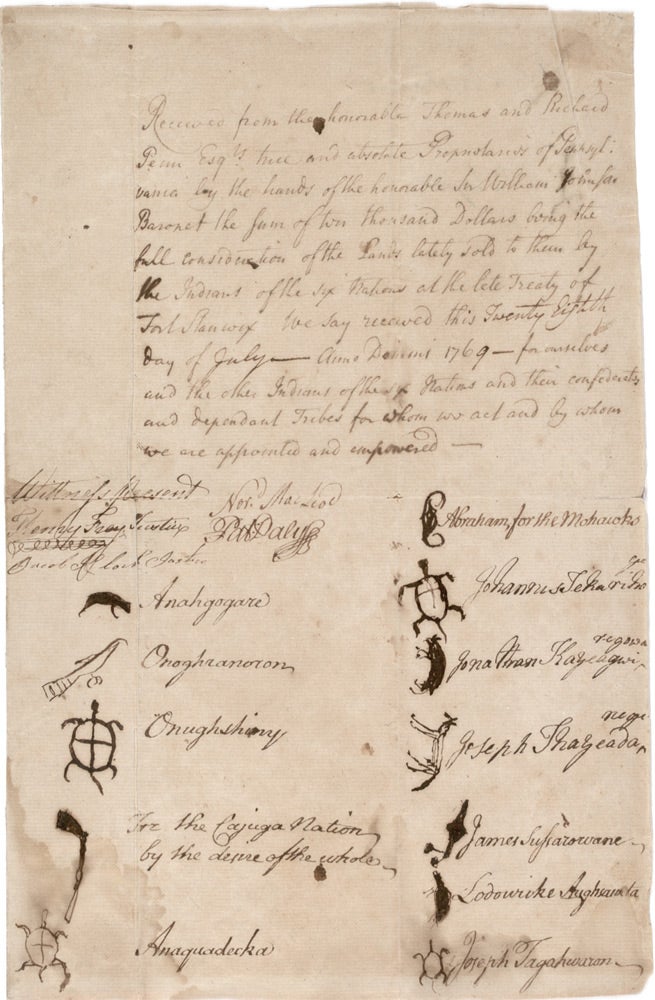 Received from the honorable Thomas and Richard
Penn Esqrs. true and absolute Proprietaries of Pensyl:
vania by the hands of the honorable Sir William Johnson
Baronet the sum of ten thousand Dollars being the
full consideration of the Lands lately sold to them by
the Indians of the six Nations at the late Treaty of
Fort Stanwix We say received this Twenty Eighth
day of July — Anno Domini 1769 — for ourselves
and the other Indians of the six Nations and their confederates
and dependant Tribes for whom we act and by whom
we are appointed and empowered —
Wittness Present
Henry Frey Justice
Nord. MacLeod
Pat Daly
Abraham for the Mohawks
Anahgogare
Johannes Teka
Onoghranoron
Jonathan
Onughshiny
Joseph
For the Cajuga Nation
by the desire of the whole
James
Lodowicke
Anaquadecka
Joseph Tagahwaron